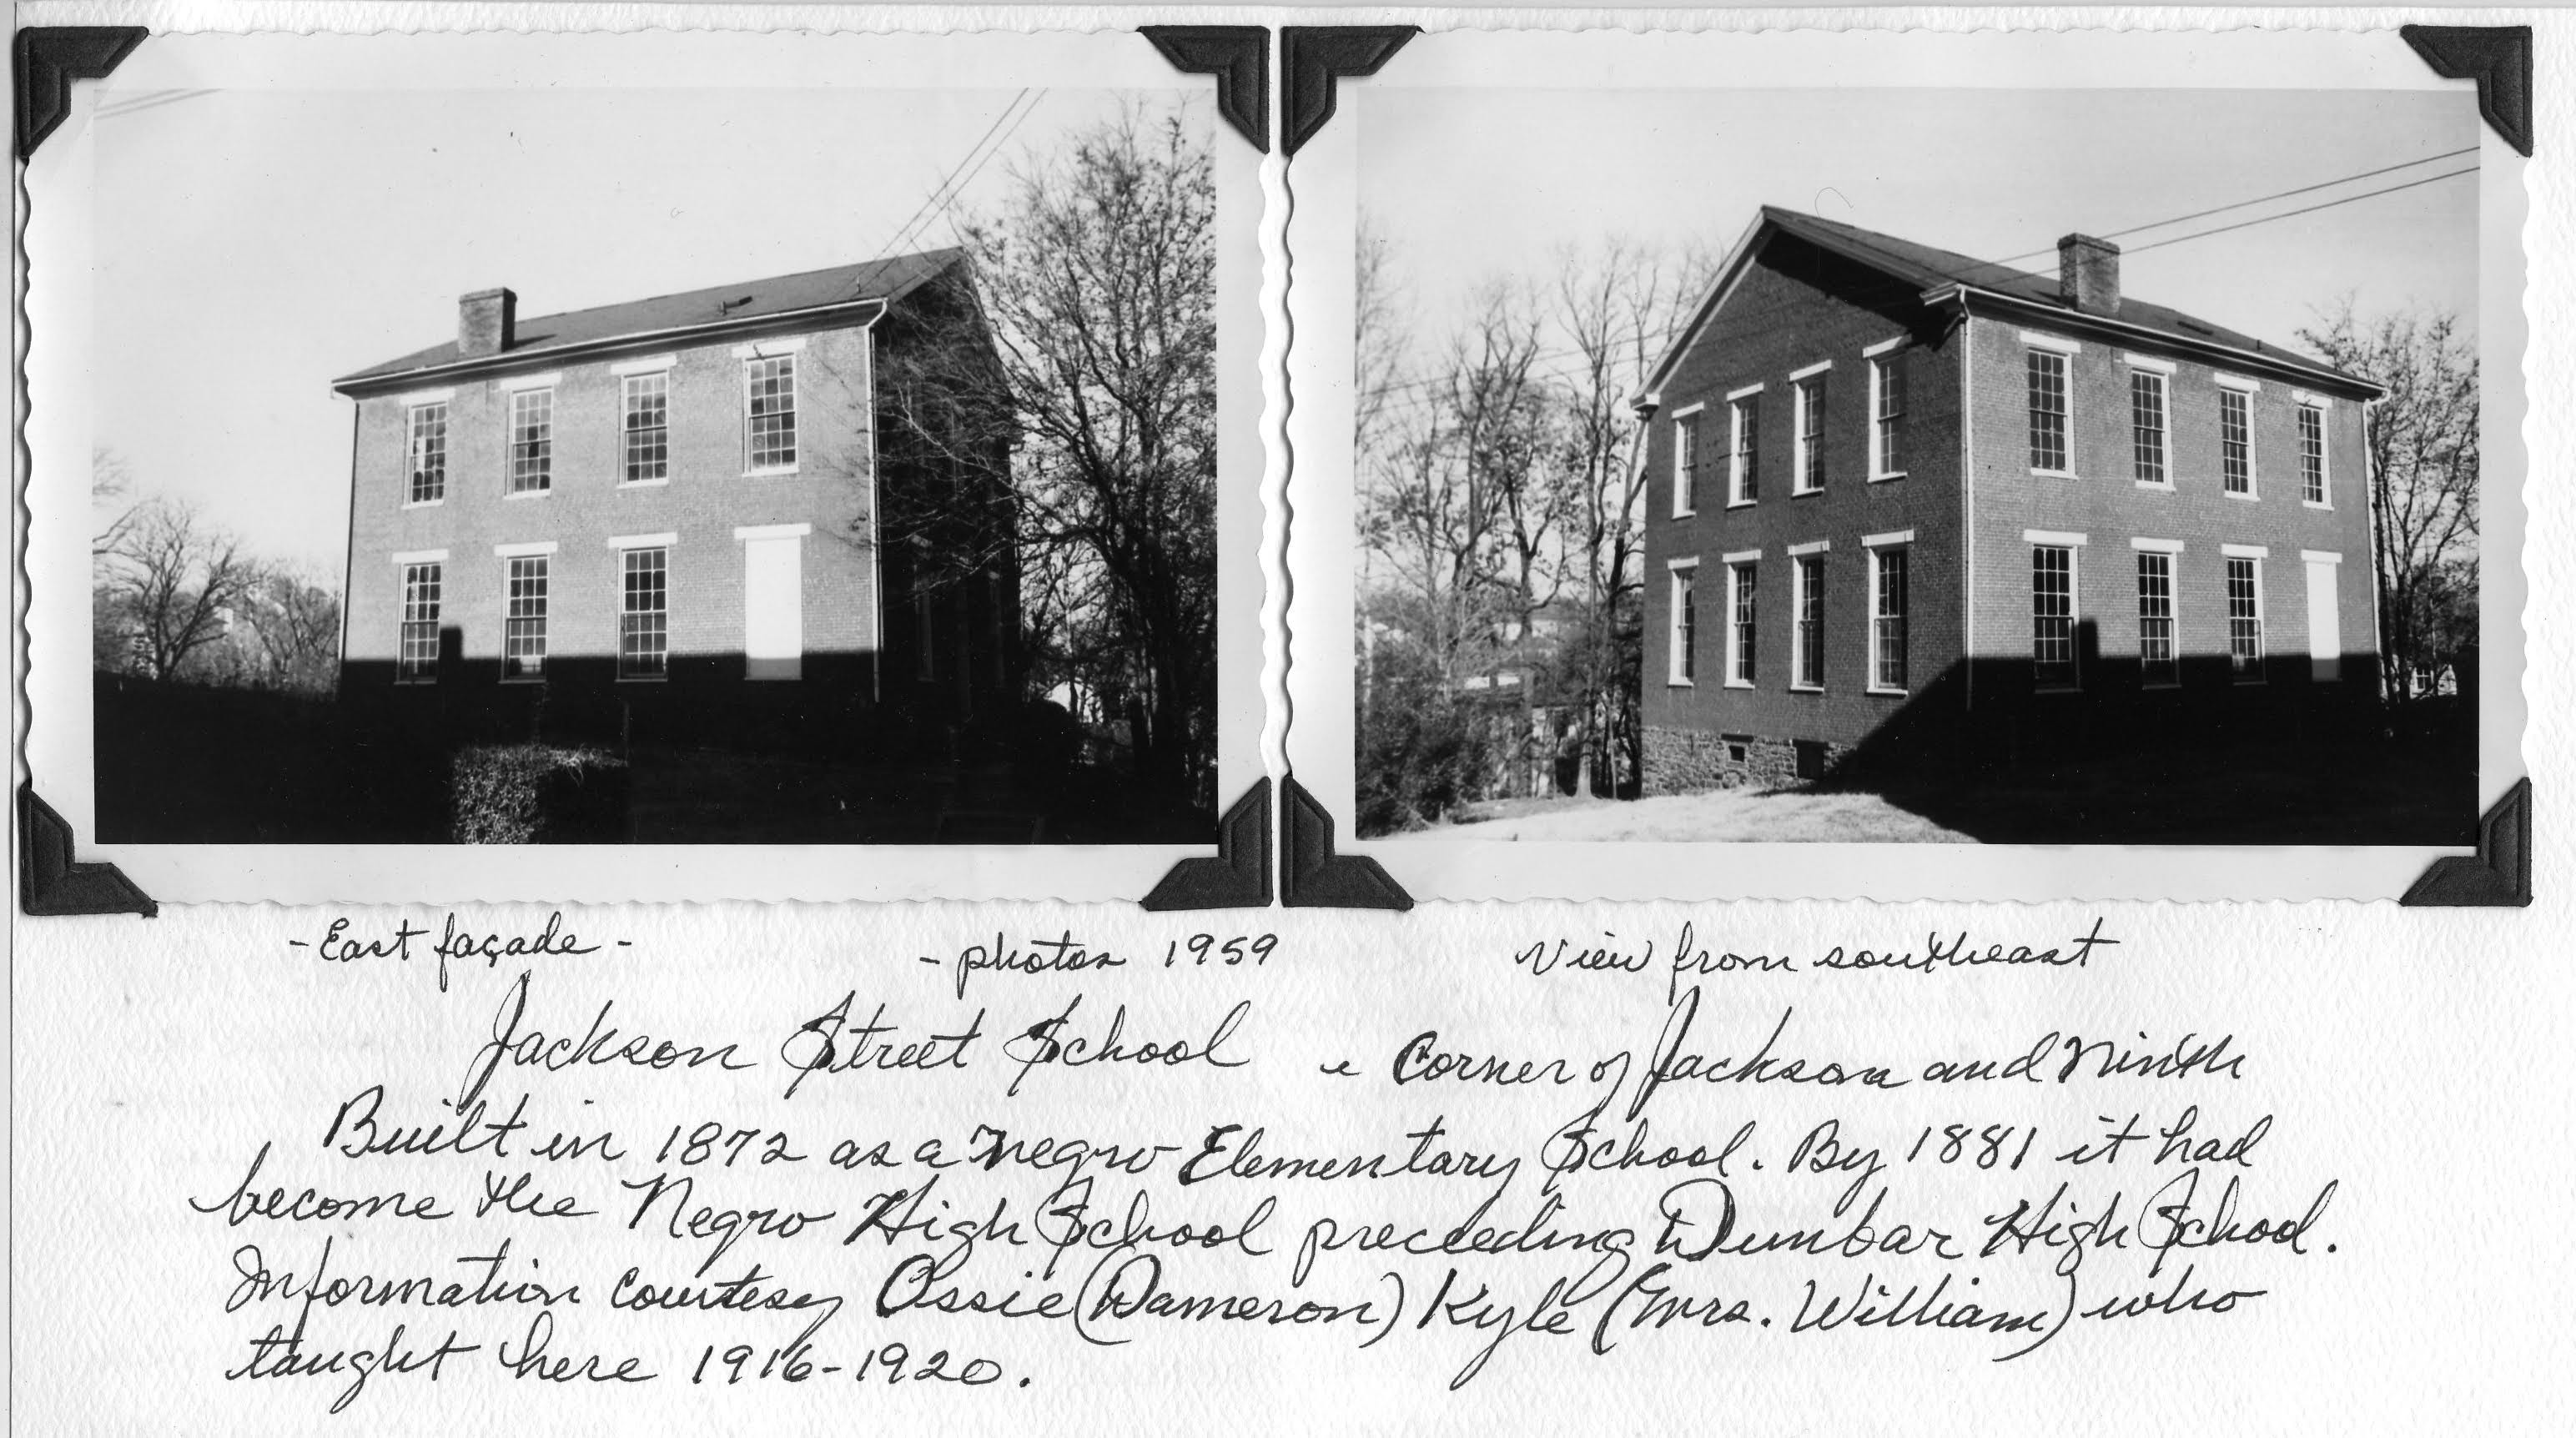 - East façade -
- photos 1959
View from southeast
Jackson Street School - Corner of Jackson and Ninth
Built in 1872 as a negro Elementary School. By 1881 it had
become the Negro High School preceeding Dunbar High School.
Information Courtesy Ossie (Dameron) Kyle (Mrs. William) who
taught here 1916-1920.